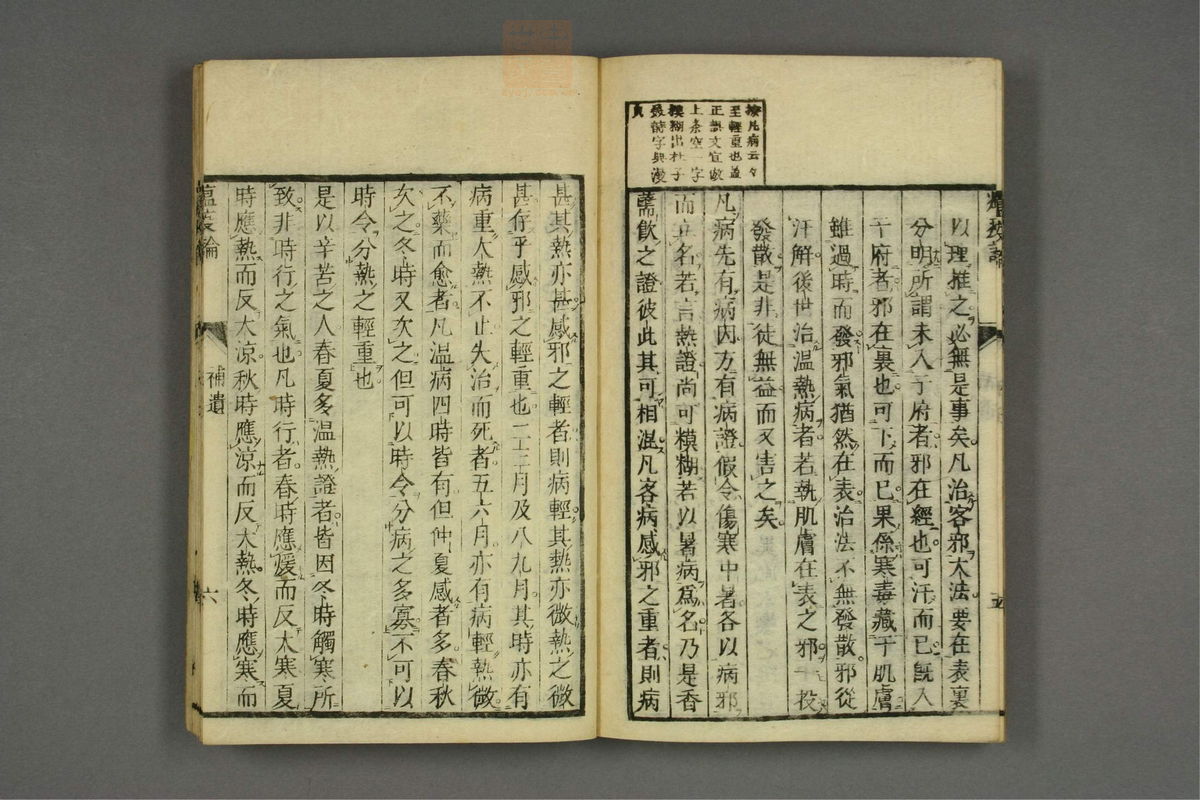 按凡病云々
至輕重也蓋
正誤文宜啟
上条空一字
模糊出杜子
美詩字典漫
貞
以理推之必無是事矣凡治客邪大法要在表裏
分明所謂未入于府者邪在經也可汗而已既入
于府者邪在裏也可下而已果係寒毒藏于肌膚
雖過時而發邪氣猶然在表治法不無發散邪從
汗解後世治溫熱病者若執肌膚在表之邪一投
發散是非徒無益而又害之矣
凡病先有病因方有病證假令傷寒中暑各以病邪
而立名若言熱證尚可模糊若以暑病爲名乃是香
薷飲之證彼此其可相混凡客病感邪之重者則病
五
甚其熱亦甚感邪之輕者則病輕其熱亦微熱之微
甚存乎感邪之輕重也二三月及八九月其時亦有
病重大熱不止失治而死者五六月亦有病輕熱微
不藥而愈者凡溫病四時皆有但仲夏感者多春秋
次之冬時又次之但可以時令分病之多寡不可以
時令分熱之輕重也
是以辛苦之人春夏多溫熱證者皆因冬時觸寒所
致非時行之氣也凡時行者春時應煖而反大寒夏
時應熱而反大涼秋時應涼而反大熱冬時應寒而
瘟疫論
補遺
六